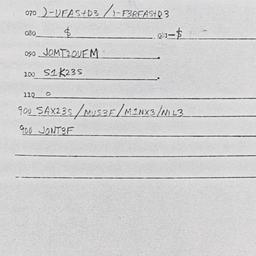 070 )-UFAS+D3 / )-F3RFAS+D3
080 $ 081-$
090 JOMT20UFM
100 S1K23S
110 0
900 SAX23S/MUS3F/M1NX3/N1L3
900 JONT3F